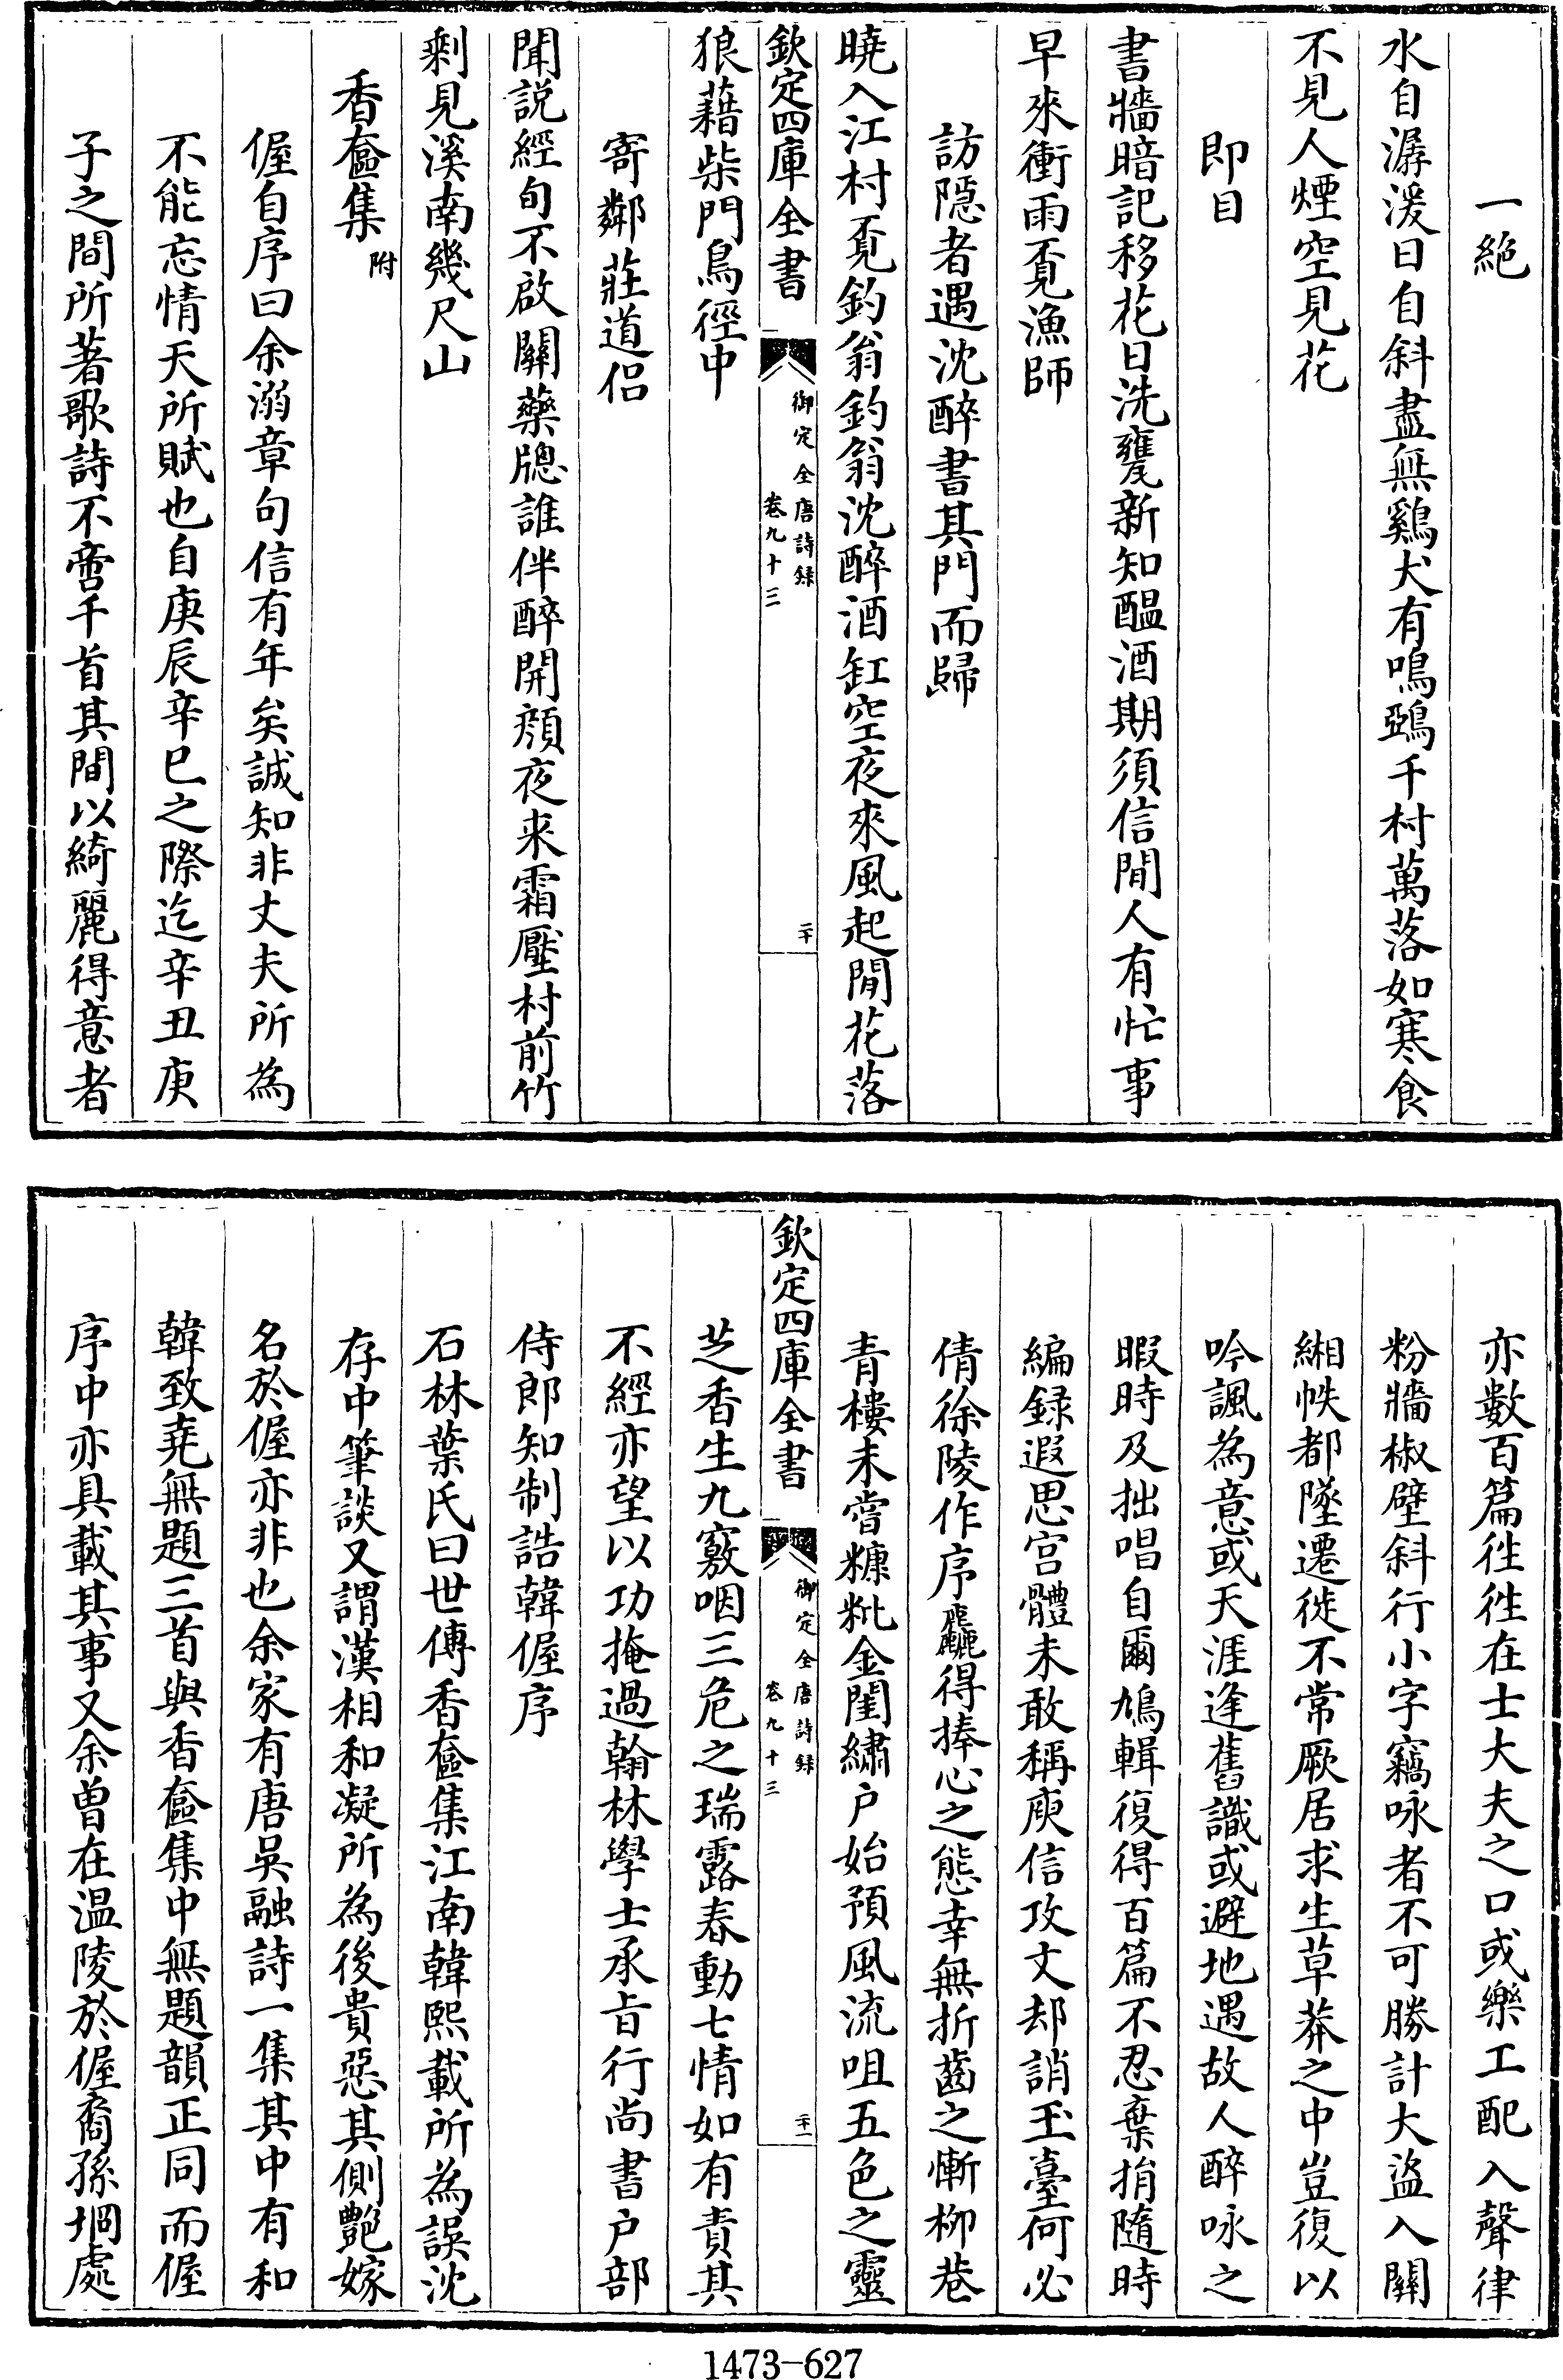 一絶
水自潺湲日自斜盡無雞犬有鳴鵶千村萬落如寒食
不見人煙空見花
即目
書牆暗記移花日洗甕新知醖酒期須信閒人有忙事
早來衝雨覔漁師
訪隠者遇沈醉書其門而歸
曉入江村覔釣翁釣翁沈醉酒缸空夜來風起閒花落
欽定四庫全書
御定全唐詩録
卷九十三
二十
狼藉柴門鳥徑中
寄鄰莊道侣
聞説經旬不啟關藥牕誰伴醉開顔夜来霜壓村前竹
剰見溪南幾尺山
香奩集附
偓自序曰余溺章句信有年矣誠知非丈夫所為
不能忘情天所賦也自庚辰辛巳之際迄辛丑庚
子之間所著歌詩不啻千首其間以綺麗得意者
亦數百篇徃徃在士大夫之口或樂工配入聲律
粉牆椒壁斜行小字竊咏者不可勝計大盜入關
緗帙都墜遷徙不常厥居求生草莽之中豈復以
吟諷為意或天涯逢舊識或避地遇故人醉咏之
暇時及拙唱自爾鳩輯復得百篇不忍棄捐隨時
編録遐思宫體未敢稱庾信攻文却誚玉臺何必
倩徐陵作序麤得捧心之態幸無折齒之慚柳巷
青樓未嘗糠粃金閨繡户始預風流咀五色之靈
欽定四庫全書
御定全唐詩録
卷九十三
二十一
芝香生九竅咽三危之瑞露春動七情如有責其
不經亦望以功掩過翰林學士承㫖行尚書户部
侍郎知制誥韓偓序
石林葉氏曰世傳香奩集江南韓熙載所為誤沈
存中筆談又謂漢相和凝所為後貴惡其側艷嫁
名於偓亦非也余家有唐吳融詩一集其中有和
韓致堯無題三首與香奩集中無題韻正同而偓
序中亦具載其事又余曽在温陵於偓裔孫坰處
1473-627